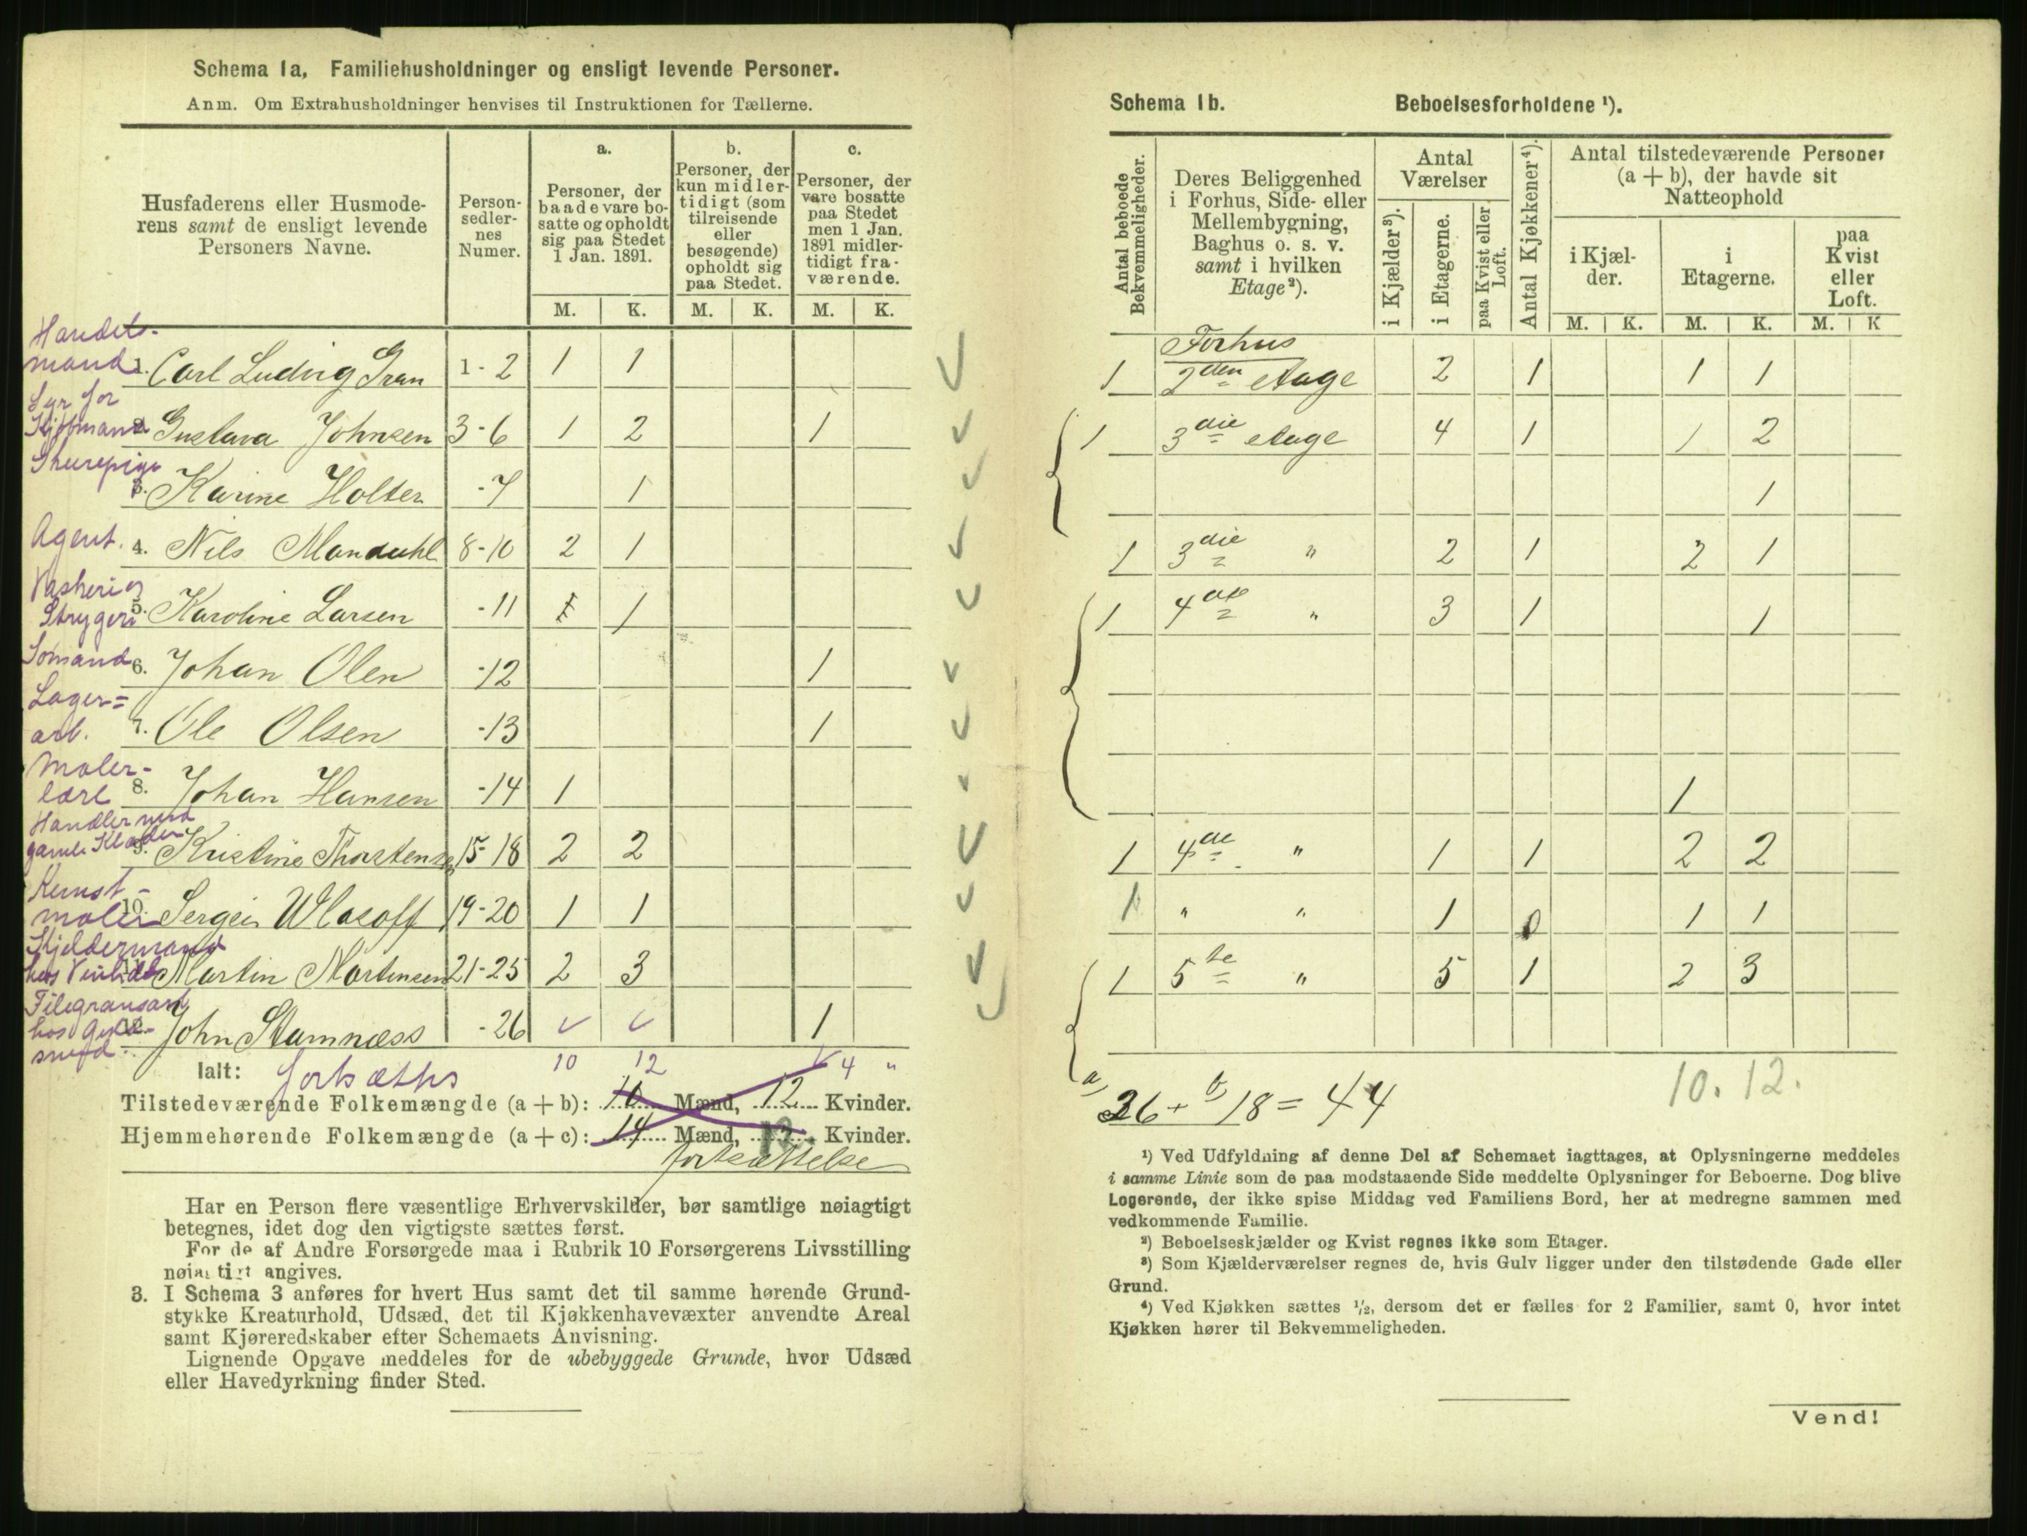 Schema 1a, Familiehusholdninger og ensligt levende Personer.
Anm. Om Extrahusholdninger henvises til Instruktionen for Tællerne.
Husfaderens eller Husmoderens samt de ensligt levende Personers Navne. Personsedlernes Numer. a. Personer, der baade vare bosatte og opholdt sig paa Stedet 1 Jan. 1891. b. Personer, der kun midlertidigt (som tilreisende eller besøgende) opholdt sig paa Stedet. c. Personer, der vare bosatte paa Stedet men 1 Jan. 1891 midlertidigt fraværende.
M. K. M. K. M. K.
Handelsmand 1. Carl Ludvig Gran 1-2 1 1
Syr for Kjøbmand 2. Gustava Johnsen 3-6 1 2 1
Skurepige 3. Karine Holter -7 1
Agent. 4. Nils Mandahl 8-10 2 1
Vaskeri og Strygeri 5. Karoline Larsen -11 1 1
Sømand 6. Johan Olsen -12 1
Lager= arb. 7. Ole Olsen -13 1
Malerlærl 8. Johan Hansen -14 1
Handler med gamle Klæder 9. Kristine Thorstensen 15-18 2 2
Kunstmaler 10. Sergei Wlasoff 19-20 1 1
Kjeldermand hos 11. Martin Mortensen 21-25 2 3
Filegransarb hos Guldsmed. 12. John Stamnæss -26 1
Ialt: fortsættes 10 12 4 "
Tilstedeværende Folkemængde (a + b): 10 Mænd, 12 Kvinder.
Hjemmehørende Folkemængde (a + c): 14 Mænd, 12 Kvinder.
fortsættelse
Har en Person flere væsentlige Erhvervskilder, bør samtlige nøiagtigt
betegnes, idet dog den vigtigste sættes først.
For de af Andre Forsørgede maa i Rubrik 10 Forsørgerens Livsstilling
nøiagtigt angives.
3. I Schema 3 anføres for hvert Hus samt det til samme hørende Grund-
stykke Kreaturhold, Udsæd, det til Kjøkkenhavevæxter anvendte Areal
samt Kjøreredskaber efter Schemaets Anvisning.
Lignende Opgave meddeles for de ubebyggede Grunde, hvor Udsæd
eller Havedyrkning finder Sted.
Schema 1b. Beboelsesforholdene ¹).
Antal beboede Bekvemmeligheder. Deres Beliggenhed i Forhus, Side- eller Mellembygning, Baghus o. s. v. samt i hvilken Etage²). Antal Værelser i Kjælder³). i Etagerne. paa Kvist eller Loft. Antal Kjøkkener⁴). Antal tilstedeværende Personer (a + b), der havde sit Natteophold i Kjælder. i Etagerne. paa Kvist eller Loft.
M. K. M. K. M. K
Forhus
1 2den etage 2 1 1 1
1 3die etage 4 1 1 2
1
1 3die " 2 1 2 1
1 4de " 3 1 1
1
1 4de " 1 1 2 2
1 " " 1 0 1 1
1 5te " 5 1 2 3
a) 26 + b) 18 = 44
10. 12.
¹) Ved Udfyldning af denne Del af Schemaet iagttages, at Oplysningerne meddeles
i samme Linie som de paa modstaaende Side meddelte Oplysninger for Beboerne. Dog blive
Logerende, der ikke spise Middag ved Familiens Bord, her at medregne sammen med
vedkommende Familie.
²) Beboelseskjælder og Kvist regnes ikke som Etager.
³) Som Kjælderværelser regnes de, hvis Gulv ligger under den tilstødende Gade eller
Grund.
⁴) Ved Kjøkken sættes ¹/₂, dersom det er fælles for 2 Familier, samt 0, hvor intet
Kjøkken hører til Bekvemmeligheden.
Vend!